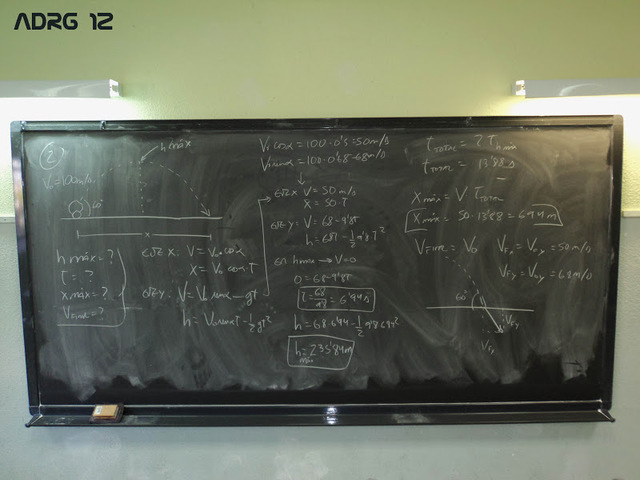 ADRG 12
2
h máx
V₀=100m/s
60°
x
h máx=?
t=?
x máx=?
V FINAL=?
eje x: V=V₀·cosα
x=V₀ cosα·T
eje y: V=V₀ senα-gt
h=V₀senαT-½gt²
V₀cosα=100·0'5=50m/s
V₀senα=100·0'68=68m/s
eje x V=50m/s
x=50·T
eje y: V=68-9'8T
h=68T-½9'8T²
en hmax → V=0
0=68-9'8T
T=68/9'8=6'94s
h=68·6'94-½9'8·6'94²
h máx=235'84m
t TOTAL=2 T h máx
t TOTAL=13'88s
X máx=V T TOTAL
X máx=50·13'88=694m
V FINAL=V₀
V Fx=V₀x=50m/s
V Fy=V₀y=68m/s
60
V Fy